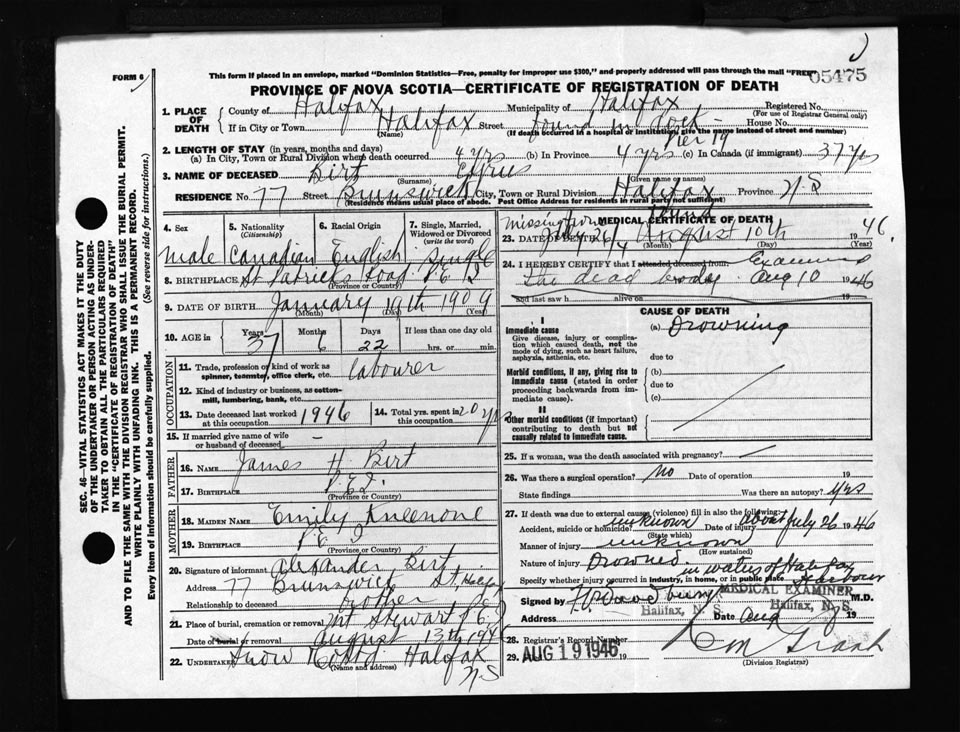 FORM 6
This form if placed in an envelope, marked "Dominion Statistics—Free, penalty for improper use $300," and properly addressed will pass through the mail "FREE"
05475
PROVINCE OF NOVA SCOTIA—CERTIFICATE OF REGISTRATION OF DEATH
1. PLACE OF DEATH
County of Halifax Municipality of Halifax Registered No.
(For use of Registrar General only)
If in City or Town Halifax Street Found in dock - Pier 19 House No.
(Name) (If death occurred in a hospital or institution, give the name instead of street and number)
2. LENGTH OF STAY (in years, months and days)
(a) In City, Town or Rural Division where death occurred 4 yrs (b) In Province 4 yrs (c) In Canada (if immigrant) 37 yrs
3. NAME OF DECEASED Birt Cyrus
(Surname) (Given name or names)
RESIDENCE NO. 77 Street Brunswick City, Town or Rural Division Halifax Province N.S
(Residence means usual place of abode. Post Office Address for residents in rural parts not sufficient)
4. Sex 5. Nationality (Citizenship) 6. Racial Origin 7. Single, Married, Widowed or Divorced (write the word)
Male Canadian English Single
8. BIRTHPLACE St Patricks Road, P.E.I.
(Province or Country)
9. DATE OF BIRTH January 19th 1909
(Month) (Day) (Year)
10. AGE in Years 37 Months 6 Days 22 If less than one day old
hrs. or min.
OCCUPATION
11. Trade, profession or kind of work as spinner, teamster, office clerk, etc. labourer
12. Kind of industry or business, as cotton-mill, lumbering, bank, etc.
13. Date deceased last worked at this occupation 1946 14. Total yrs. spent in this occupation 20 yrs
15. If married give name of wife or husband of deceased -
FATHER
16. NAME James H. Birt
17. BIRTHPLACE P.E.I.
(Province or Country)
MOTHER
18. MAIDEN NAME Emily
19. BIRTHPLACE P E I
(Province or Country)
20. Signature of informant Alexander Birt
Address 77 Brunswick St, Halifax
Relationship to deceased brother
21. Place of burial, cremation or removal Mt Stewart P.E.I
Date of burial or removal August 13th 1946
22. UNDERTAKER Snow Halifax N.S
(Name and address)
MEDICAL CERTIFICATE OF DEATH
Missing from July 26
23. DATE OF DEATH August 10th 1946.
(Month) (Day) (Year)
24. I HEREBY CERTIFY that I attended deceased from Examined
the dead body Aug 10 1946
and last saw h alive on 19
CAUSE OF DEATH
I
Immediate cause
Give disease, injury or complication which caused death, not the mode of dying, such as heart failure, asphyxia, asthenia, etc.
(a) Drowning
due to
Morbid conditions, if any, giving rise to immediate cause (stated in order proceeding backwards from immediate cause).
(b)
due to
(c)
II
Other morbid conditions (if important) contributing to death but not causally related to immediate cause.
25. If a woman, was the death associated with pregnancy?
26. Was there a surgical operation? No Date of operation 19
State findings Was there an autopsy? Yes
27. If death was due to external causes (violence) fill in also the following:
Accident, suicide or homicide? unknown Date of injury about July 26 1946
(State which)
Manner of injury unknown
(How sustained)
Nature of injury Drowned in waters of Halifax Harbour
Specify whether injury occurred in industry, in home, or in public place
Signed by M.D.
MEDICAL EXAMINER
Halifax, N. S.
Halifax, N. S.
Address Date Aug 19
28. Registrar's Record Number
29. AUG 19 1946 19
(Division Registrar)
SEC. 46—VITAL STATISTICS ACT MAKES IT THE DUTY
OF THE UNDERTAKER OR PERSON ACTING AS UNDERTAKER TO OBTAIN ALL THE PARTICULARS REQUIRED
IN THE "CERTIFICATE OF REGISTRATION OF DEATH"
AND TO FILE THE SAME WITH THE DIVISION REGISTRAR WHO SHALL ISSUE THE BURIAL PERMIT.
WRITE PLAINLY WITH UNFADING INK. THIS IS A PERMANENT RECORD.
Every item of information should be carefully supplied. (See reverse side for instructions.)